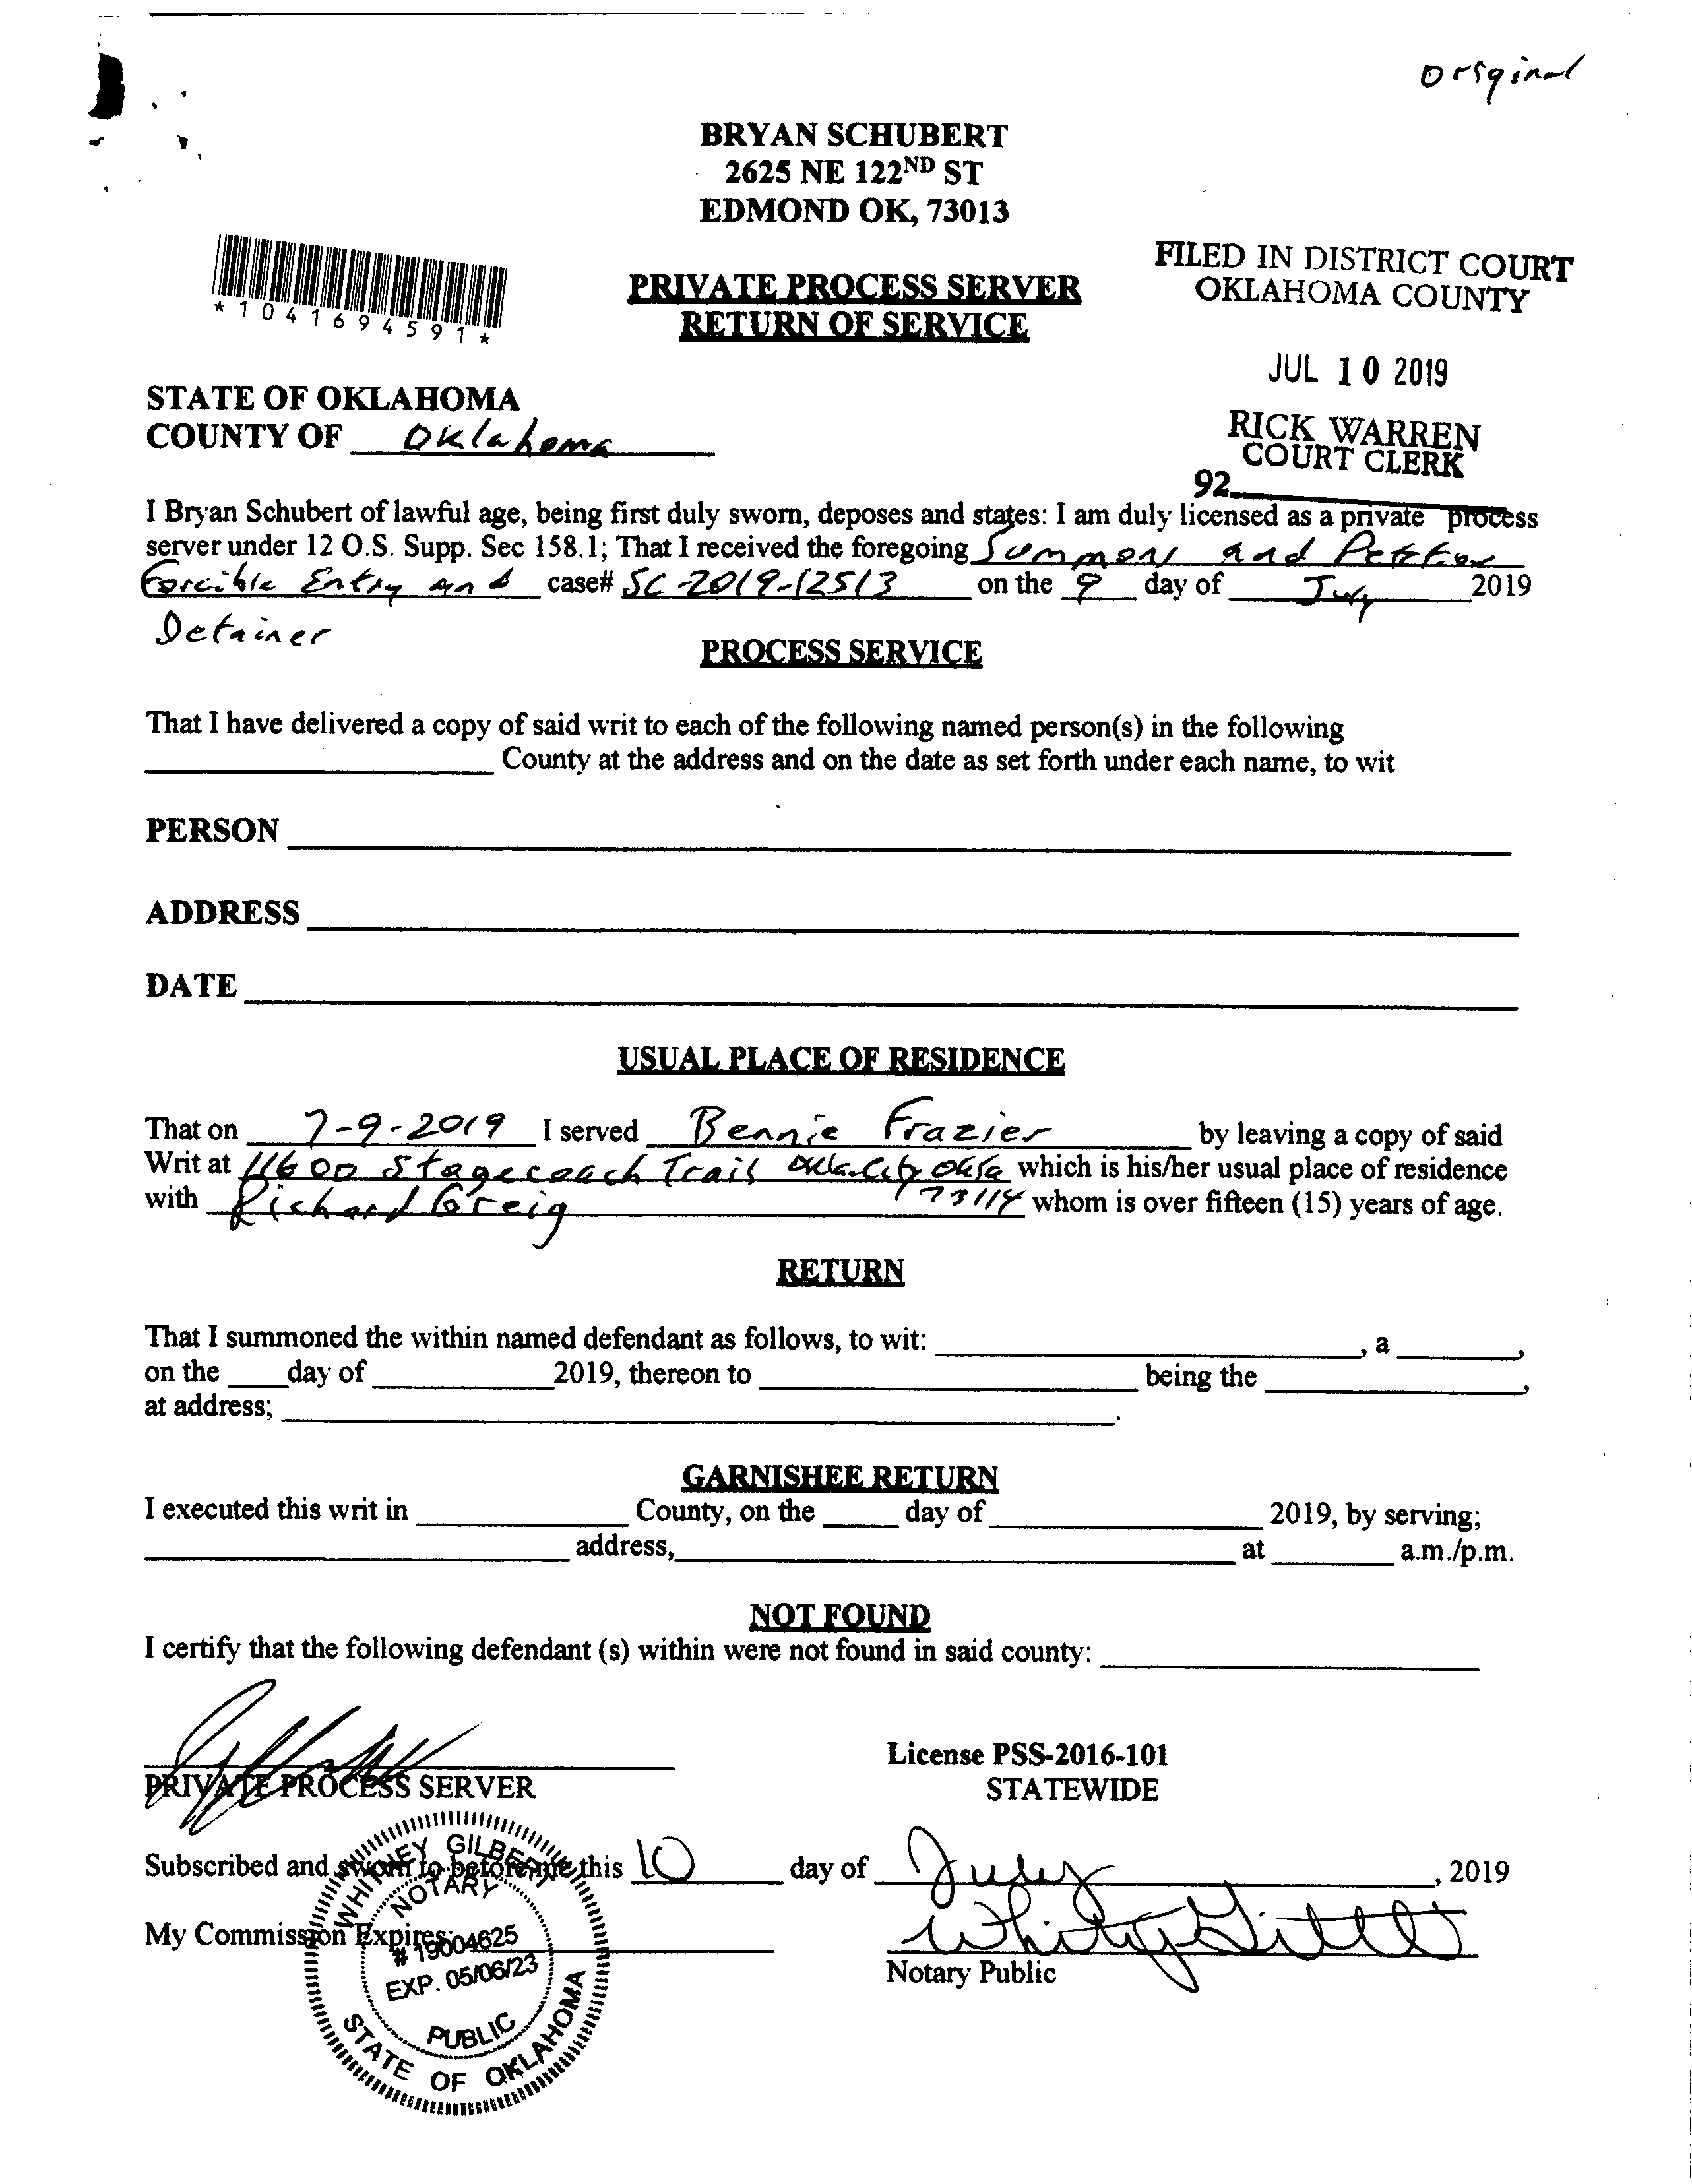 Original
BRYAN SCHUBERT
2625 NE 122ND ST
EDMOND OK, 73013
*1041694591*
PRIVATE PROCESS SERVER
RETURN OF SERVICE
FILED IN DISTRICT COURT
OKLAHOMA COUNTY
JUL 10 2019
RICK WARREN
COURT CLERK
92
STATE OF OKLAHOMA
COUNTY OF Oklahoma
I Bryan Schubert of lawful age, being first duly sworn, deposes and states: I am duly licensed as a private process
server under 12 O.S. Supp. Sec 158.1; That I received the foregoing Summons and Petition
Forcible Entry and case# SC-2019-12513 on the 9 day of July 2019
Detainer
PROCESS SERVICE
That I have delivered a copy of said writ to each of the following named person(s) in the following
County at the address and on the date as set forth under each name, to wit
PERSON
ADDRESS
DATE
USUAL PLACE OF RESIDENCE
That on 7-9-2019 I served Bennie Frazier by leaving a copy of said
Writ at 11600 Stagecoach Trail Okla. City Okla which is his/her usual place of residence
with Richard Greig 73114 whom is over fifteen (15) years of age.
RETURN
That I summoned the within named defendant as follows, to wit: , a ,
on the day of 2019, thereon to being the ,
at address; .
GARNISHEE RETURN
I executed this writ in County, on the day of 2019, by serving;
address, at a.m./p.m.
NOT FOUND
I certify that the following defendant (s) within were not found in said county:
PRIVATE PROCESS SERVER
License PSS-2016-101
STATEWIDE
Subscribed and sworn to before me this 10 day of July, 2019
My Commission Expires:
Notary Public
WHITNEY GILBERT
NOTARY
# 19004625
EXP. 05/06/23
PUBLIC
STATE OF OKLAHOMA